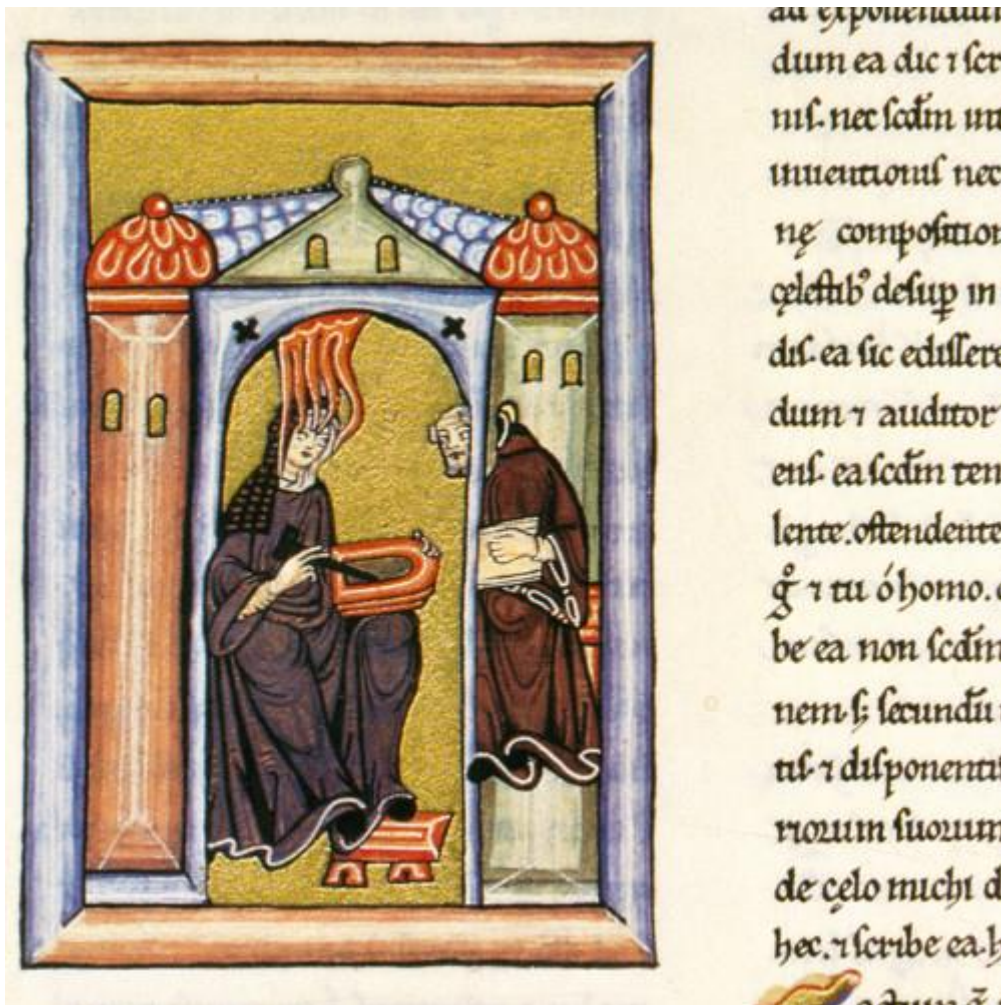 ad exponendum
dum ea dic ⁊ scr
nis. nec scdm in
inuentionis nec
nę composition
cęlestib⁹ desup in
dis. ea sic edissere
dum ⁊ auditor
ens. ea scdm ten
lente. ostendente
gͦ ⁊ tu ó homo.
be ea non scdm
nem. s; secundū
tis. ⁊ disponenti
riorum suorum
de cęlo michi d
hec. ⁊ scribe ea. h